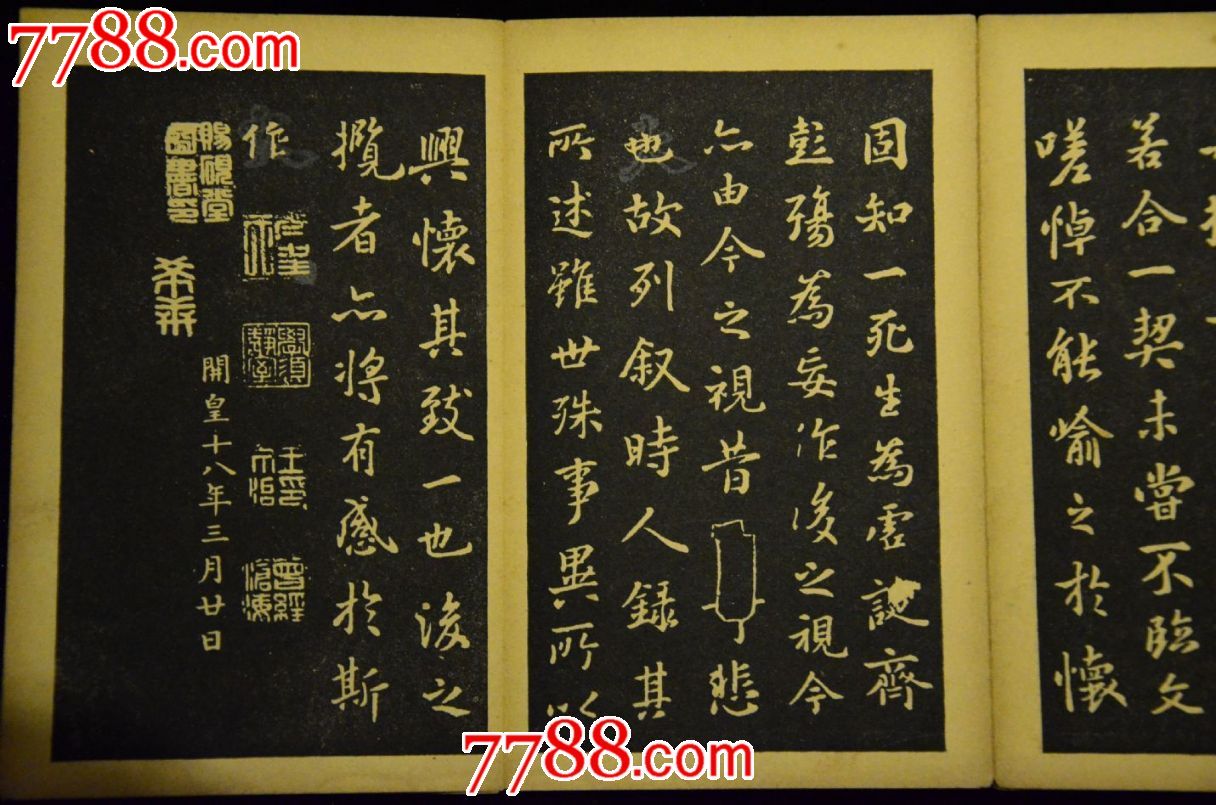 7788.com
若合一契未嘗不臨文
嗟悼不能喻之於懷
固知一死生為虛誕齊
彭殤為妄作後之視今
亦由今之視昔悲
也故列叙時人録其
所述雖世殊事異所以
興懷其致一也後之
攬者亦將有感於斯
作
學須靜室
曾經滄海
賜硯堂圖書印
開皇十八年三月廿日
7788.com